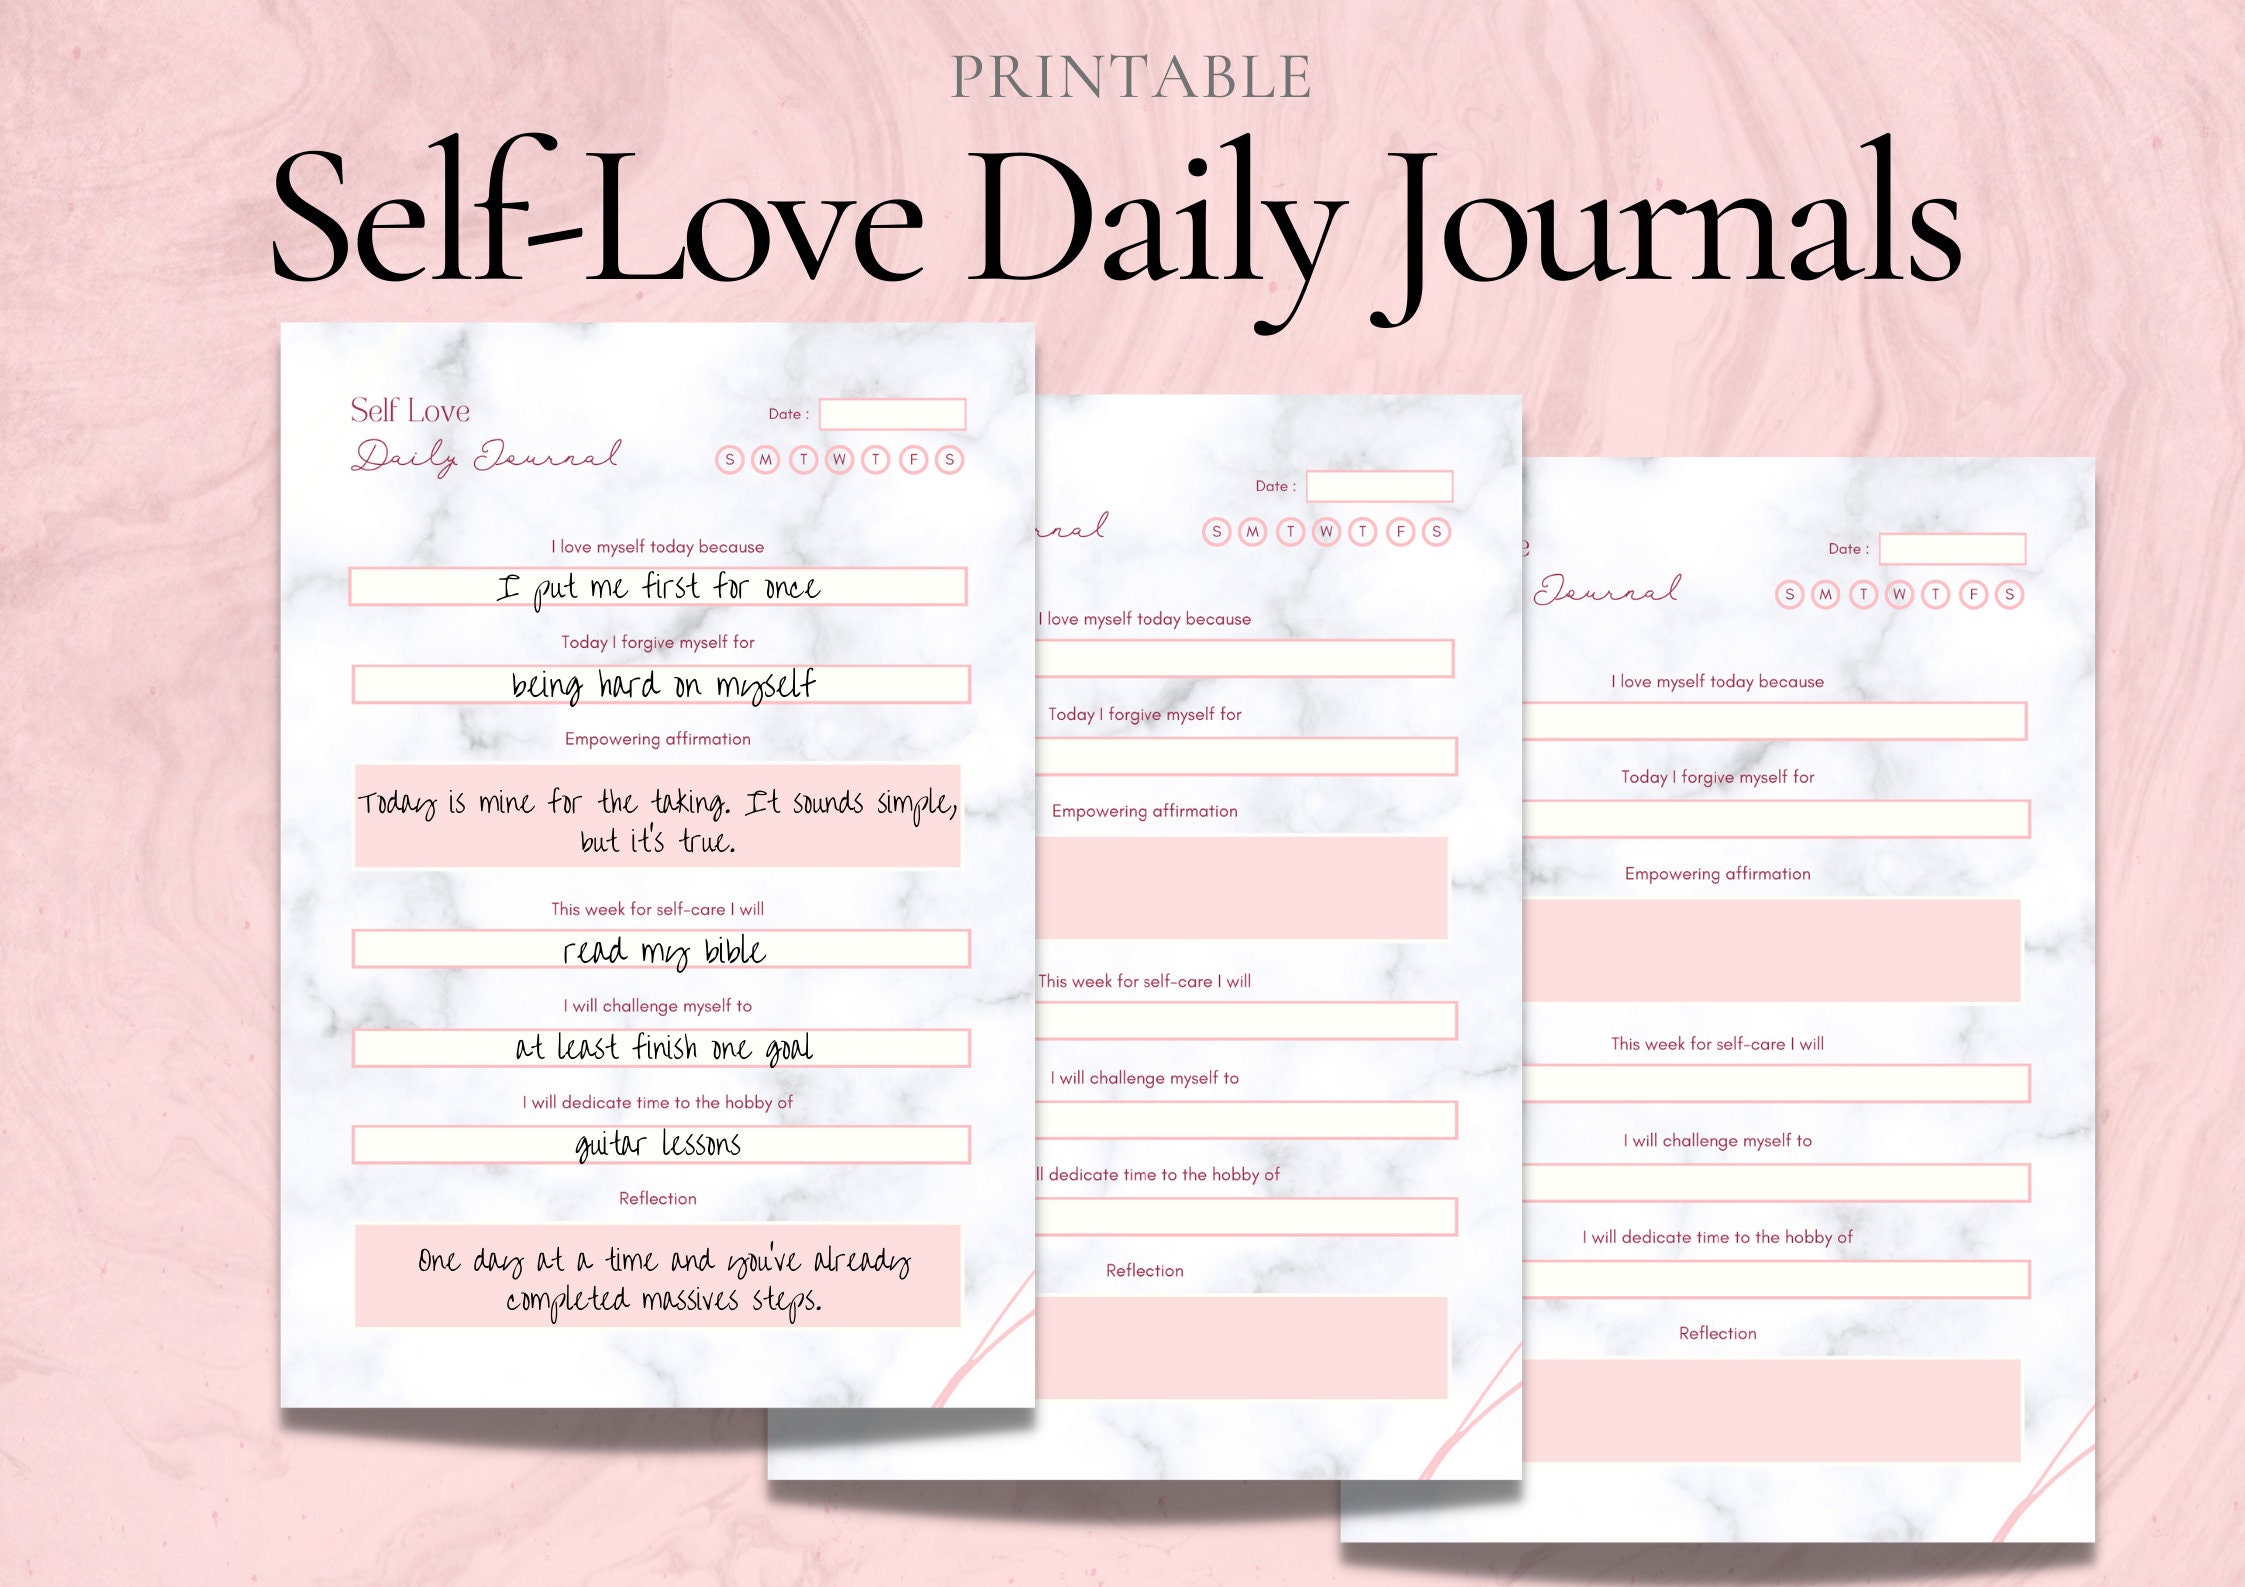 PRINTABLE
Self-Love Daily Journals
Self Love
Daily Journal
Date :
S M T W T F S
I love myself today because
I put me first for once
Today I forgive myself for
being hard on myself
Empowering affirmation
Today is mine for the taking. It sounds simple,
but it's true.
This week for self-care I will
read my bible
I will challenge myself to
at least finish one goal
I will dedicate time to the hobby of
guitar lessons
Reflection
One day at a time and you've already
completed massives steps.
Date :
rnal
S M T W T F S
I love myself today because
Today I forgive myself for
Empowering affirmation
This week for self-care I will
I will challenge myself to
ll dedicate time to the hobby of
Reflection
e
Date :
Journal
S M T W T F S
I love myself today because
Today I forgive myself for
Empowering affirmation
This week for self-care I will
I will challenge myself to
I will dedicate time to the hobby of
Reflection